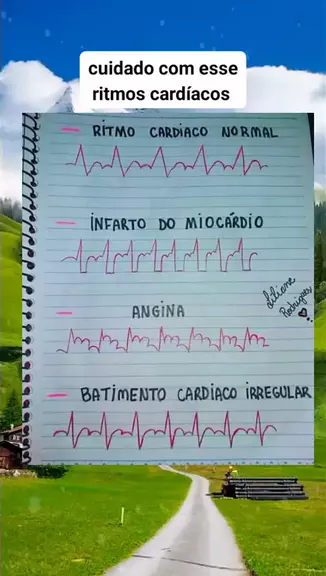 cuidado com esse
ritmos cardíacos
RITMO CARDIACO NORMAL
INFARTO DO MIOCÁRDIO
Liliane
Rodrigues
ANGINA
BATIMENTO CARDIACO IRREGULAR